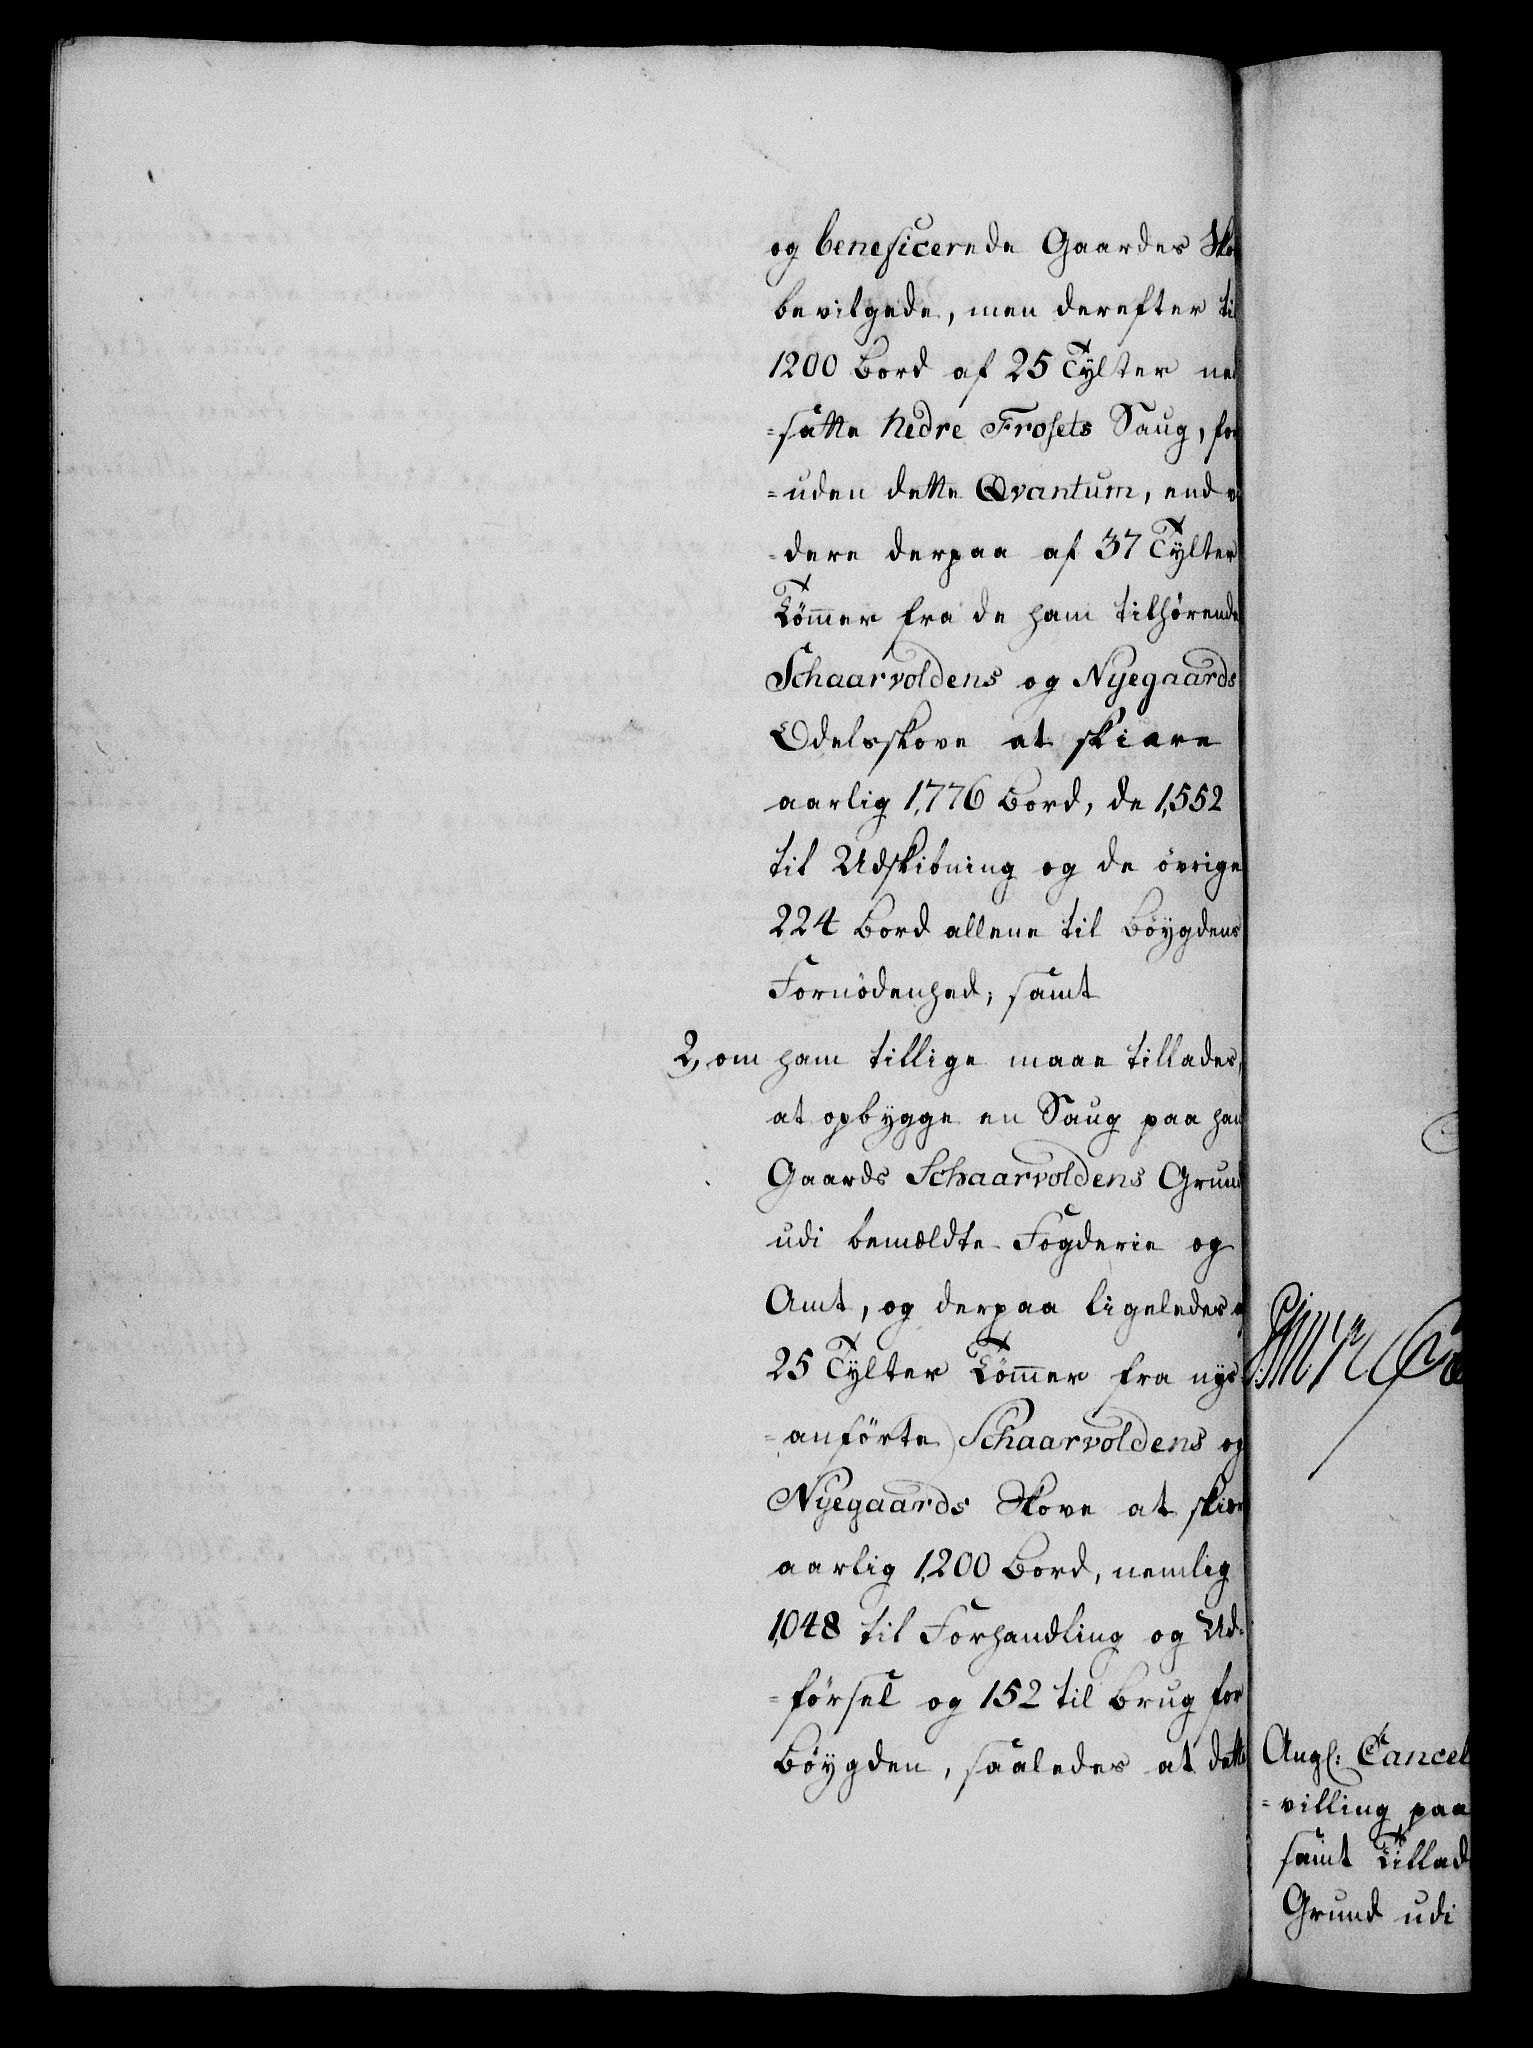 og beneficerede Gaardes Sko
bevilgede, men derefter til
1200 Bord af 25 Tylter ned
=satte Nedre Frosets Saug, for
=uden dette Qvantum, end vi
=dere derpaa af 37 Tylter
Tömmer fra de ham tilhörende
Schaarvoldens og Nyegaards
Odelsskove at skiære
aarlig 1,776 Bord, de 1,552
til Udskibning og de övrige
224 Bord allene til Böygdens
Fornödenhed; samt
2, om ham tillige maae tillades,
at opbygge en Saug paa han
Gaards Schaarvoldens Grund
udi bemældte Fogderie og
Amt, og derpaa ligeledes a
25 Tylter Tömmer fra nys
=anförte Schaarvoldens og
Nyegaards Skove at skiær
aarlig 1,200 Bord, nemlig
1,048 til Forhandling og Ud=
=försel og 152 til Brug for
Böygden, saaledes at dette
Angl: Cancel
=villing paa
samt Tillad
Grund udi